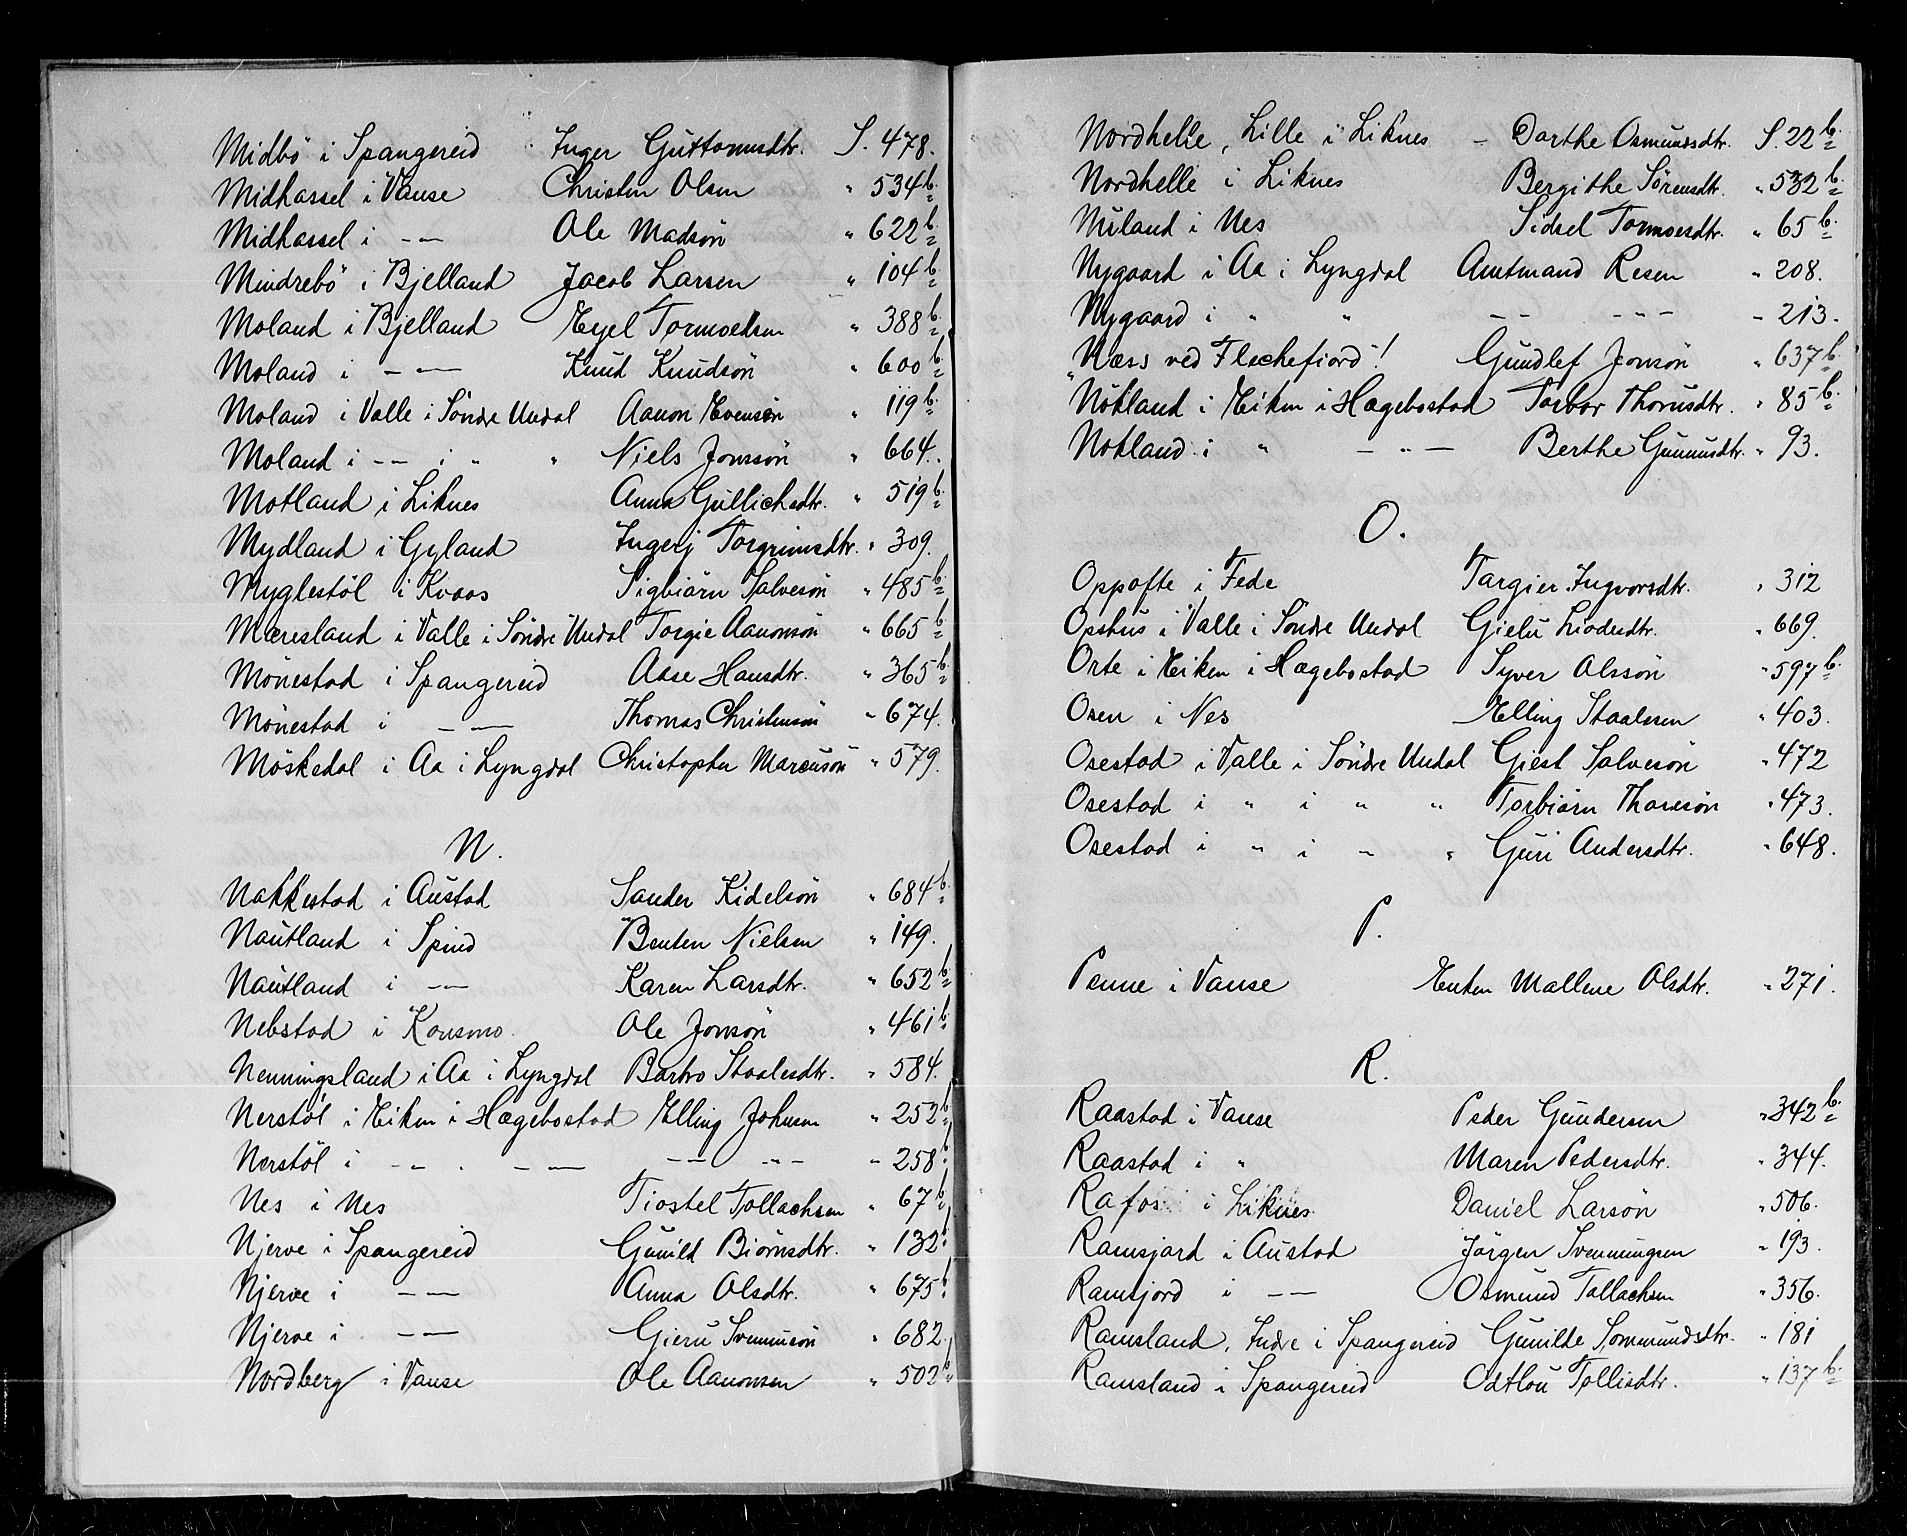 Midbö i Spangereid Inger Guttormsdtr. S. 478.
Midhassel i Vanse Christen Olsen " 534 b.
Midhassel i -"- Ole Madsön " 622 b
Mindrebö i Bjelland Jacob Larsen " 104 b.
Moland i Bjelland Eyel Tormoedsen " 388 b.
Moland i -"- Knud Knudsön " 600 b
Moland i Valle i Söndre Undal Aanon Evensön " 119 b.
Moland i -"- i " " Niels Jonssön " 664.
Motland i Liknes Anna Gullichsdtr. " 519 b.
Mydland i Gyland Ingerj Torgrimsdtr. " 309.
Myglestöl i Kvaas Sigbiörn Salvesön " 485 b.
Mæresland i Valle i Söndre Undal Torgie Aanonsön " 665 b
Mönestad i Spangereid Aase Hansdtr. " 365 b.
Mönestad i -"- Thomas Christensön " 674.
Möskedal i Aa i Lyngdal Christopher Marcusön " 579.
N.
Nakkestad i Austad Sander Kidelsön " 684 b.
Nautland i Spind Benten Nielsen " 149.
Nautland i -"- Karen Larsdtr. " 652 b.
Nebstad i Konsmo. Ole Jonsön " 461 b.
Nenningsland i Aa i Lyngdal Barbro Staalesdtr. " 584.
Nerstöl i Eiken i Hægebostad Elling Johnsen " 252 b
Nerstöl i -"- . -"- -"- -"- " 258 b.
Nes i Nes Tiostel Tollachsen " 67 b
Njerve i Spangereid Gunild Biörnsdtr. " 132 b.
Njerve i -"- Anna Olsdtr. " 675 b.
Njerve i -"- Gieru Svennusön " 682.
Nordberg i Vanse Ole Aanonsen " 502 b.
Nordhelle, Lille i Liknes - Dorthe Osmundsdtr. S. 22 b.
Nordhelle i Liknes Bergithe Sörensdtr. " 532 b.
Nuland i Nes Sidsel Tormoesdtr. " 65 b.
Nygaard i Aa i Lyngdal Amtmand Resen " 208.
Nygaard i " " -- --- " 213.
"Næss ved Flechefiord"! Gundlef Jonsön " 637 b.
Nökland i Eiken i Hægebostad Torbor Thorusdtr. " 85 b.
Nökland i " - " - Berthe Gunnusdtr. " 93.
O.
Oppofte i Fede Targier Ingvorsdtr. " 312
Opshus i Valle i Söndre Undal Gielu Liodusdtr. " 669.
Orte i Eiken i Hægebostad Syver Olssön " 597 b.
Osen i Nes Elling Staalesen " 403.
Osestad i Valle i Söndre Undal Giest Salvesön " 472
Osestad i " i " " Torbiörn Thoresön " 473.
Osestad i " i " " Guri Andersdtr. " 648.
P.
Penne i Vanse Enken Mallene Olsdtr. " 271.
R.
Raastad i Vanse Peder Gundersen " 342 b.
Raastad i " Maren Pedersdtr. " 344.
Rafos i Liknes Daniel Larsön " 506.
Ramsjord i Austad Jörgen Svenningsen " 193.
Ramsjord i -- Osmund Tollachsen " 356.
Ramsland, Indre i Spangereid Gunilde Sommundsdtr. " 181
Ramsland i Spangereid Odtlou Tollisdtr. " 137 b.